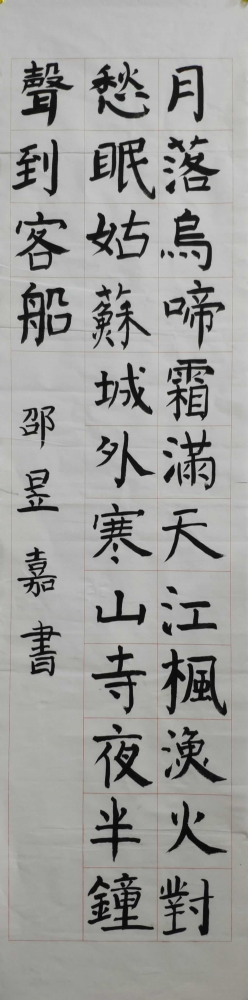 月落烏啼霜滿天江楓漁火對
愁眠姑蘇城外寒山寺夜半鐘
聲到客船
邵昱嘉書